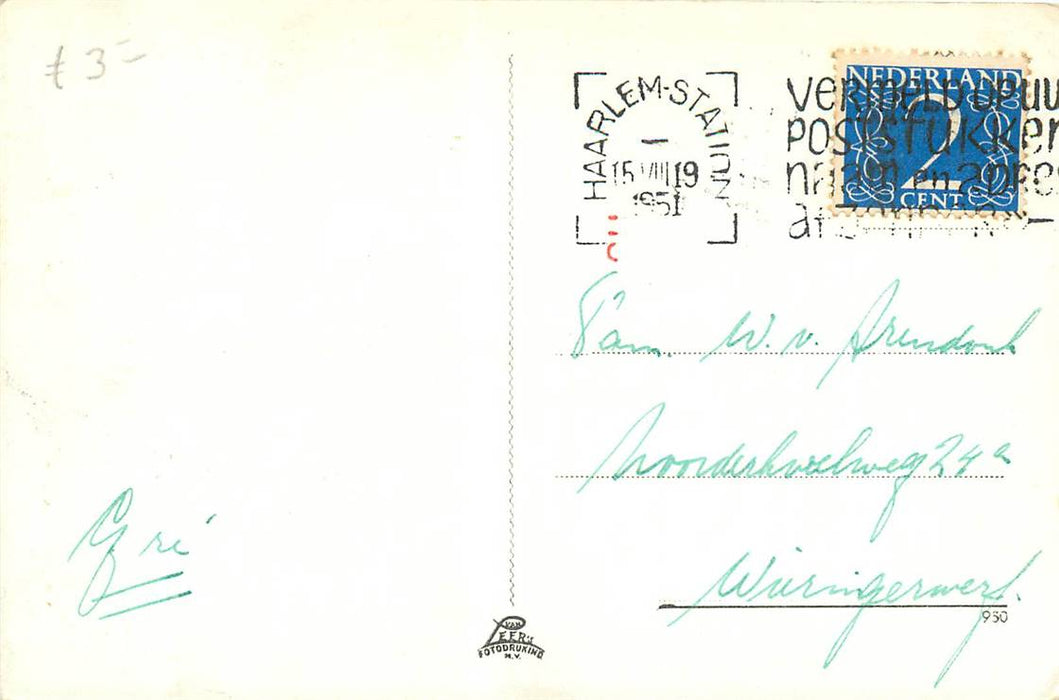 £ 3-
HAARLEM-STATION
15 VIII 19
1951
Vermeld op uw
poststukken
naam en adres
NEDERLAND
2
CENT
Fam. W. v. Arendonk
24a
Wieringerwerf.
Gré
950
VAN
LEER's
FOTODRUKIND
N.V.